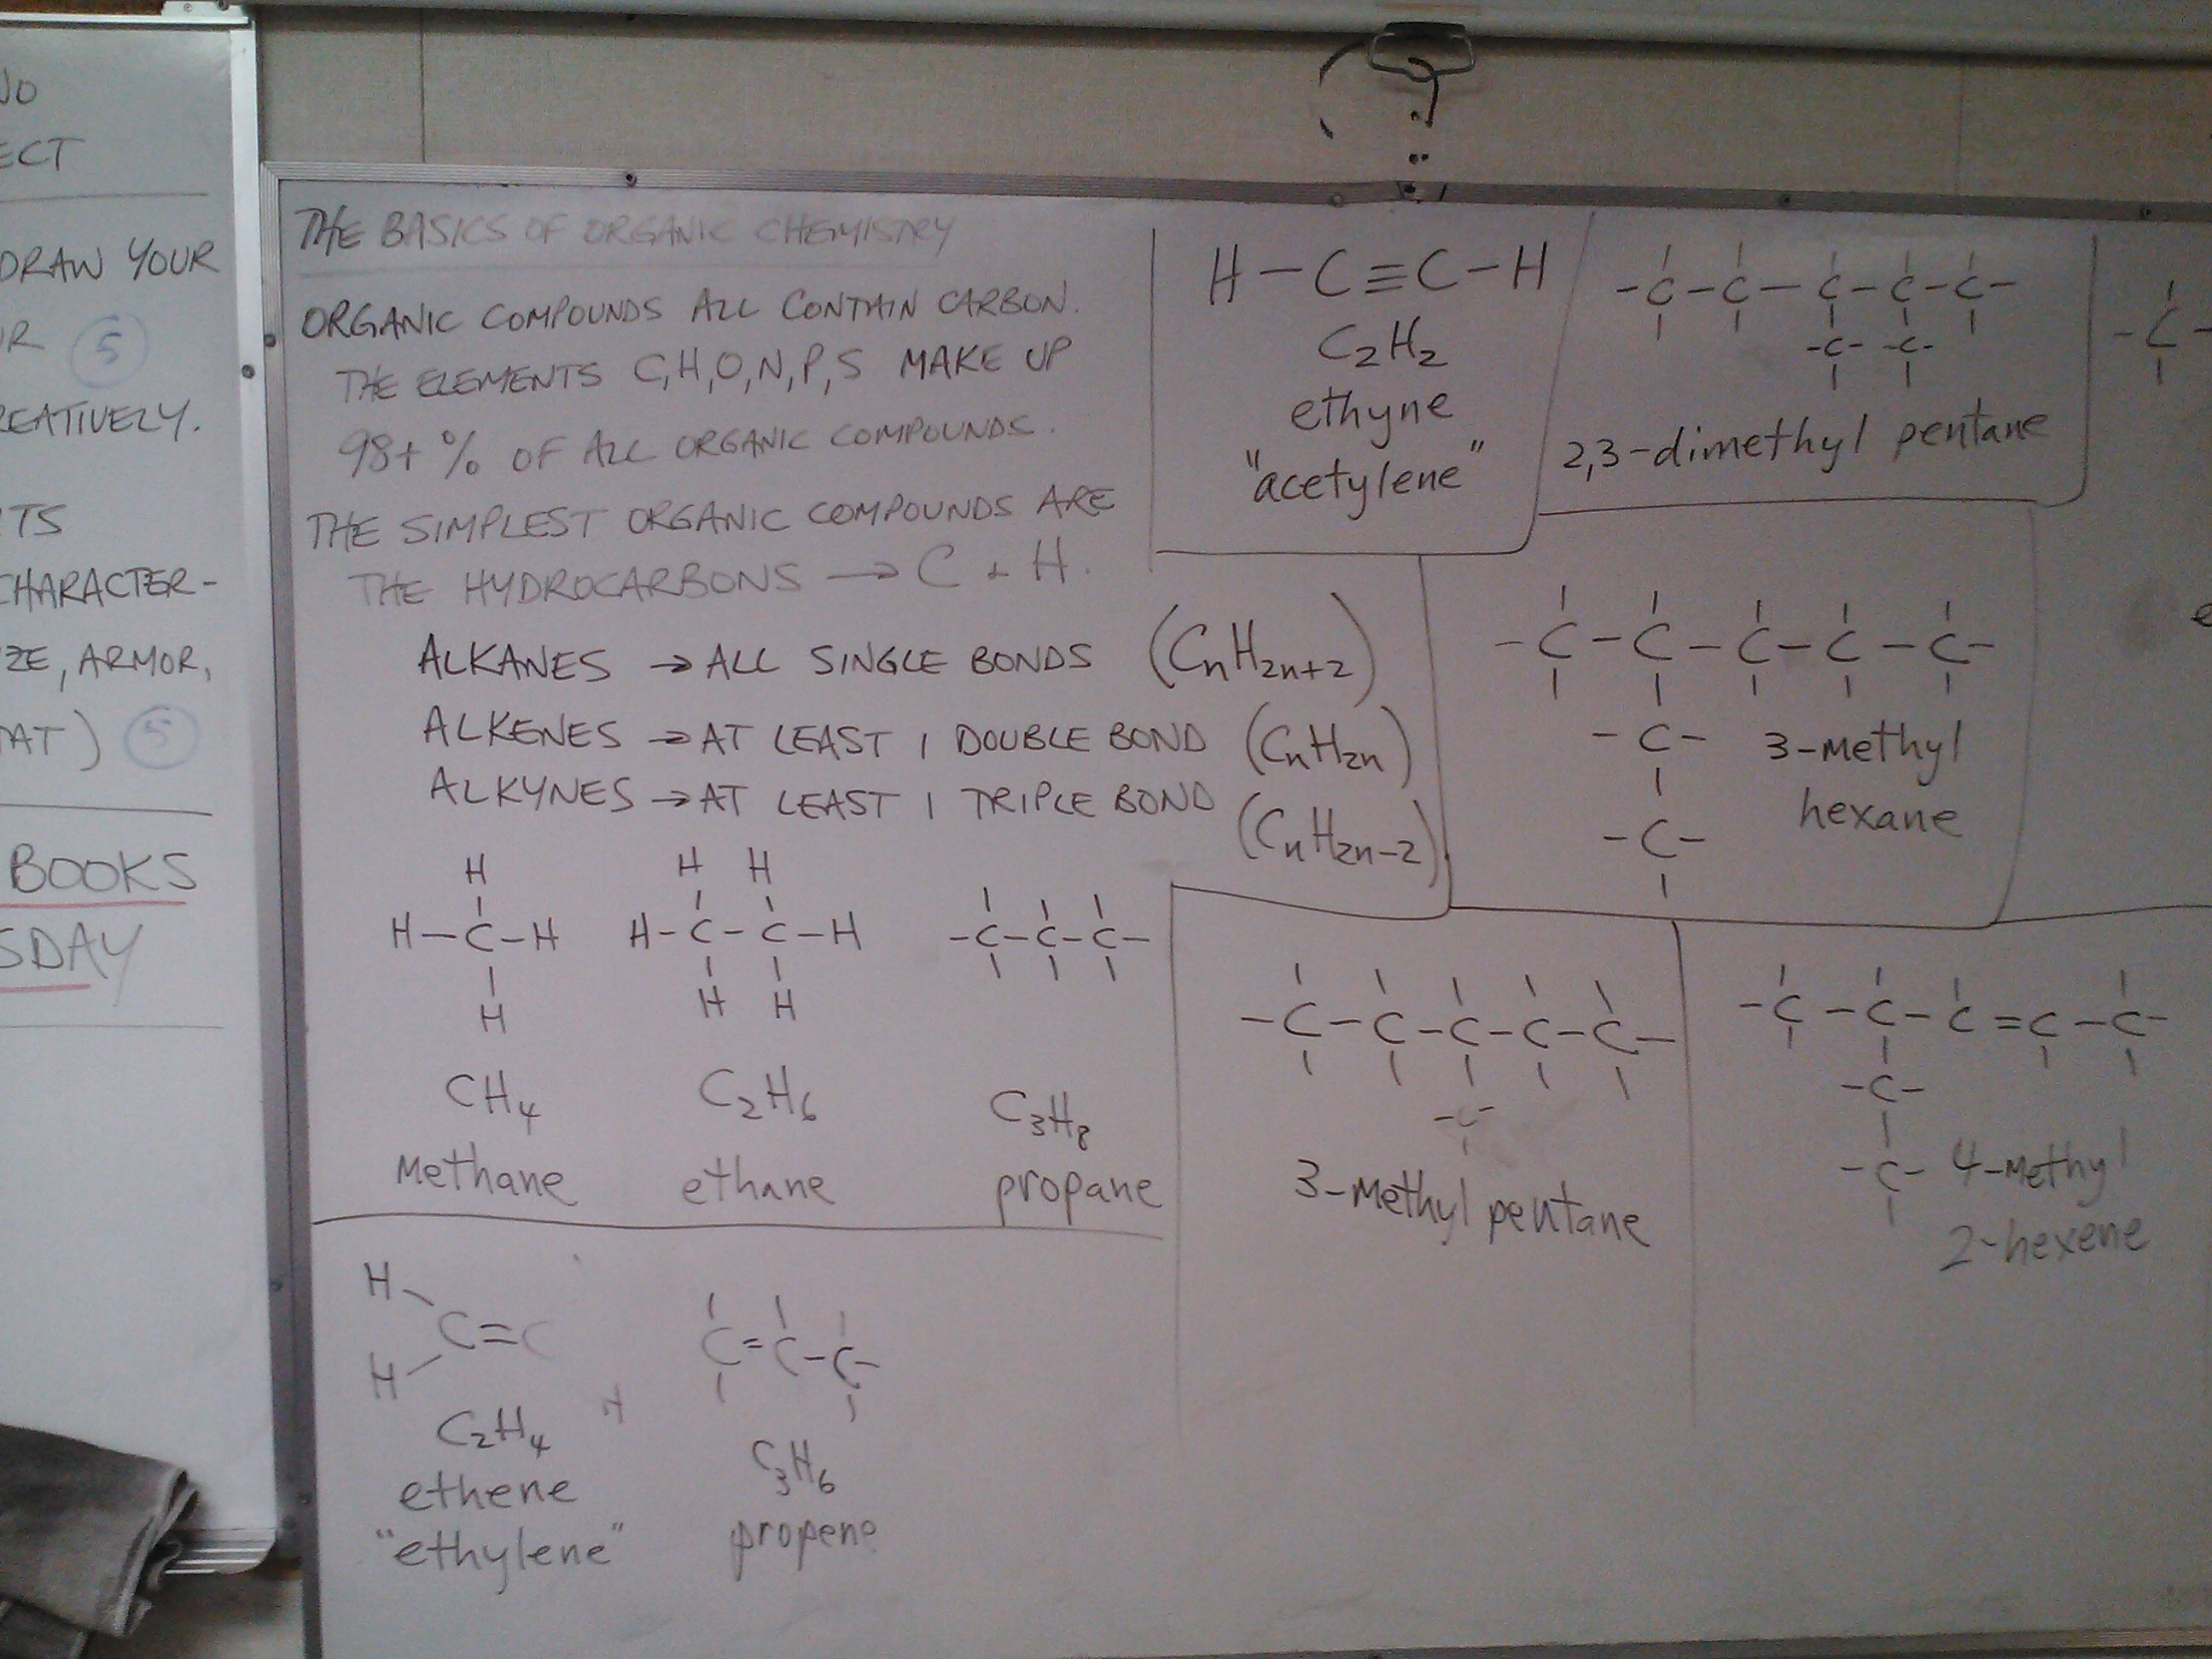 NO
ECT
DRAW YOUR
R 5
REATIVELY.
TS
CHARACTER-
ZE, ARMOR,
TAT) 5
BOOKS
SDAY
THE BASICS OF ORGANIC CHEMISTRY
ORGANIC COMPOUNDS ALL CONTAIN CARBON.
THE ELEMENTS C,H,O,N,P,S MAKE UP
98+ % OF ALL ORGANIC COMPOUNDS.
THE SIMPLEST ORGANIC COMPOUNDS ARE
THE HYDROCARBONS → C + H.
ALKANES → ALL SINGLE BONDS (CnH2n+2)
ALKENES → AT LEAST 1 DOUBLE BOND (CnH2n)
ALKYNES → AT LEAST 1 TRIPLE BOND (CnH2n-2)
H
H-C-H
H
CH4
methane
H H
H-C-C-H
H H
C2H6
ethane
-C-C-C-
C3H8
propane
H
C=C
H
H
C2H4
ethene
"ethylene"
C=C-C-
C3H6
propene
H-C≡C-H
C2H2
ethyne
"acetylene"
-C-C-C-C-C-
-C- -C-
2,3-dimethyl pentane
-C-
e
-C-C-C-C-C-
-C-
-C-
3-methyl
hexane
-C-C-C-C-C-
-C-
3-methyl pentane
-C-C-C=C-C-
-C-
-C-
4-methyl
2-hexene